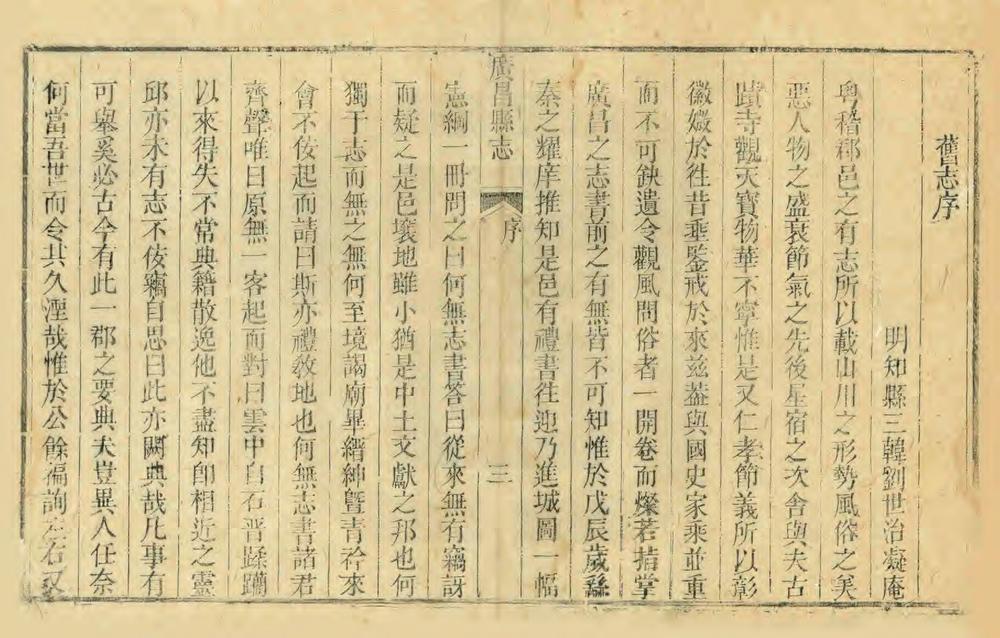 舊志序
明知縣三韓劉世治凝庵
粵稽郡邑之有志所以載山川之形勢風俗之美
惡人物之盛衰節氣之先後星宿之次舍與夫古
蹟寺觀天寶物華不寧惟是又仁孝節義所以彰
徽媺於徃昔垂鍳戒於來兹葢與國史家乘並重
而不可缺遺令觀風問俗者一開卷而燦若指掌
廣昌之志書前之有無皆不可知惟於戊辰歲繇
秦之耀庠推知是邑有禮書徃迎乃進城圖一幅
憲綱一冊問之曰何無志書答曰從來無有竊訝
而疑之是邑壤地雖小猶是中土文獻之邦也何
獨于志而無之無何至境謁廟畢縉紳曁青衿來
會不佞起而請曰斯亦禮敎地也何無志書諸君
齊聲唯曰原無一客起而對曰雲中自石晋蹂躪
以來得失不常典籍散逸他不盡知卽相近之靈
邱亦未有志不佞竊自思曰此亦闕典哉凡事有
可舉奚必古今有此一郡之要典夫豈異人任奈
何當吾世而令其久湮哉惟於公餘徧詢之右又
廣昌縣志
序
三